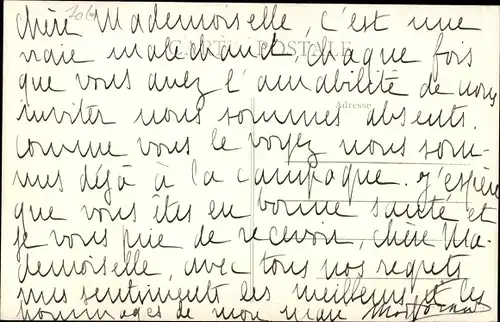 Chère Mademoiselle c'est une
vraie malechance, chaque fois
que vous avez l'amabilité de nous
inviter nous sommes absents.
Comme vous le voyez nous som-
mes déjà à la campagne. J'espère
que vous êtes en bonne santé et
je vous prie de recevoir, chère Ma-
demoiselle, avec tous nos regrets
mes sentiments les meilleurs et les
hommages de mon mari
CARTE POSTALE
Adresse